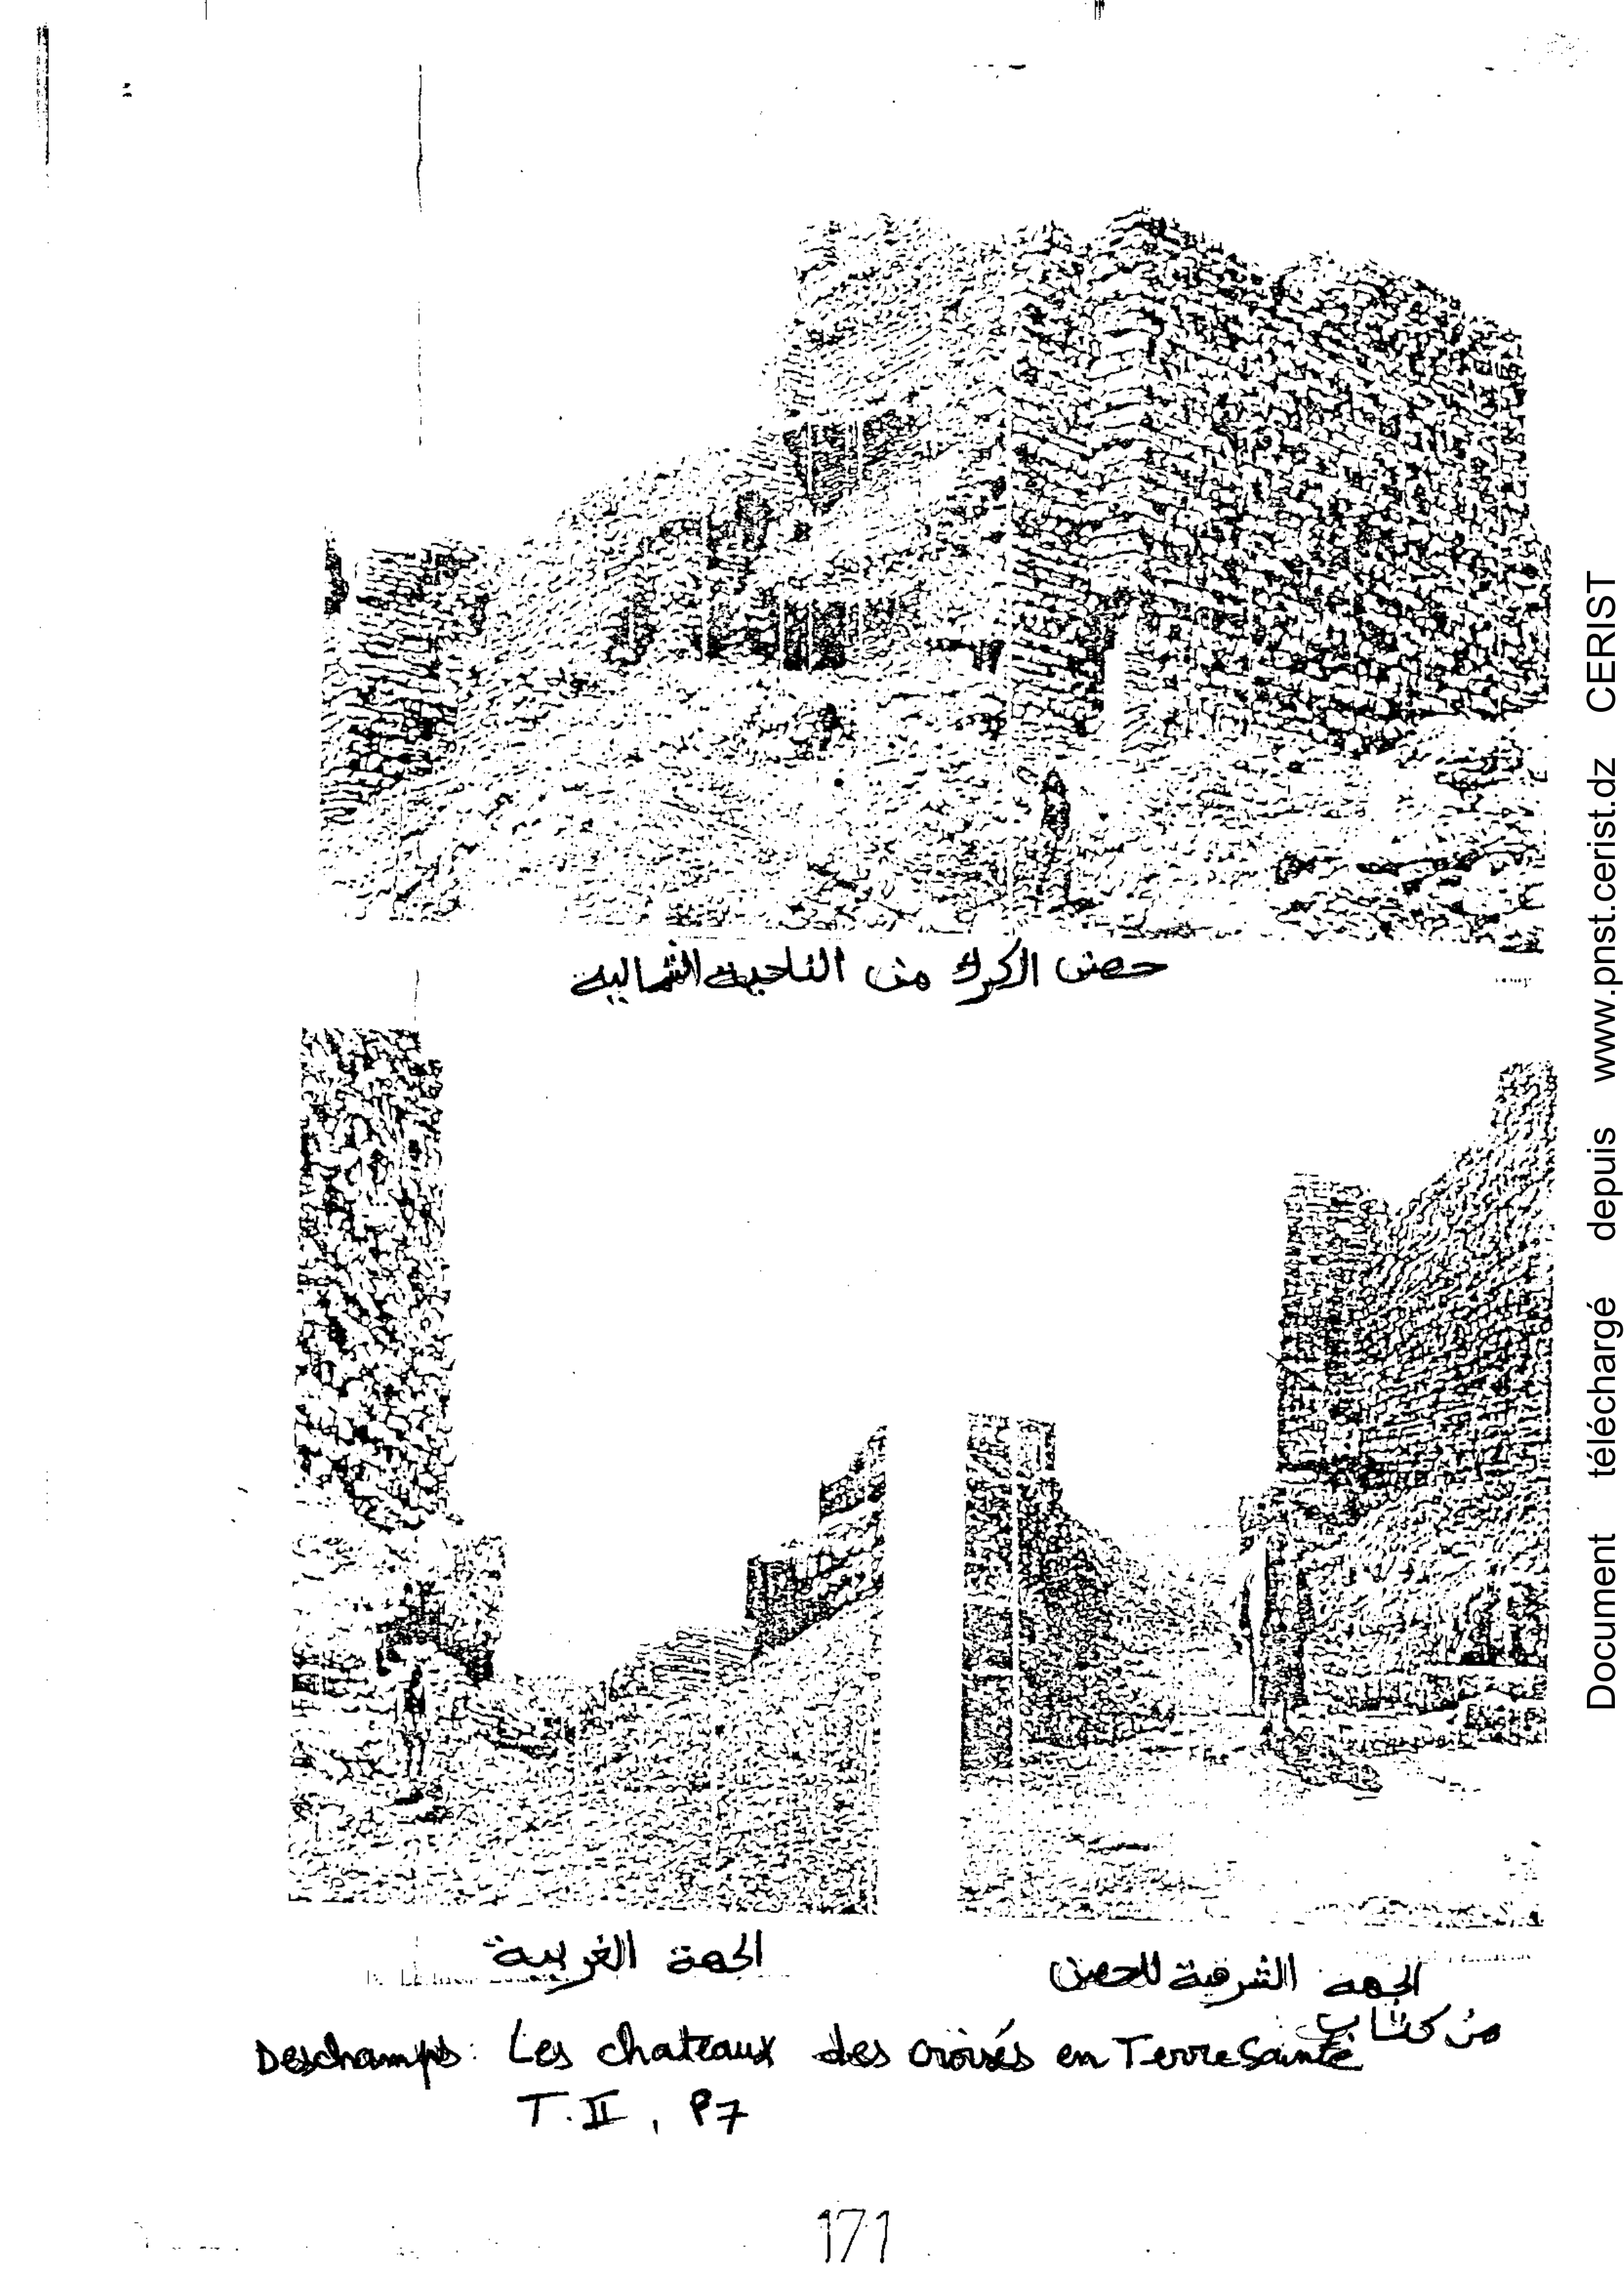 حصن الكرك من الناحية الشمالية
الجهة الغربية
الجهة الشرقية للحصن
من كتاب:
Deschamps: Les chateaux des croisés en Terre Sainte
T.II, P7
171
Document téléchargé depuis www.pnst.cerist.dz CERIST